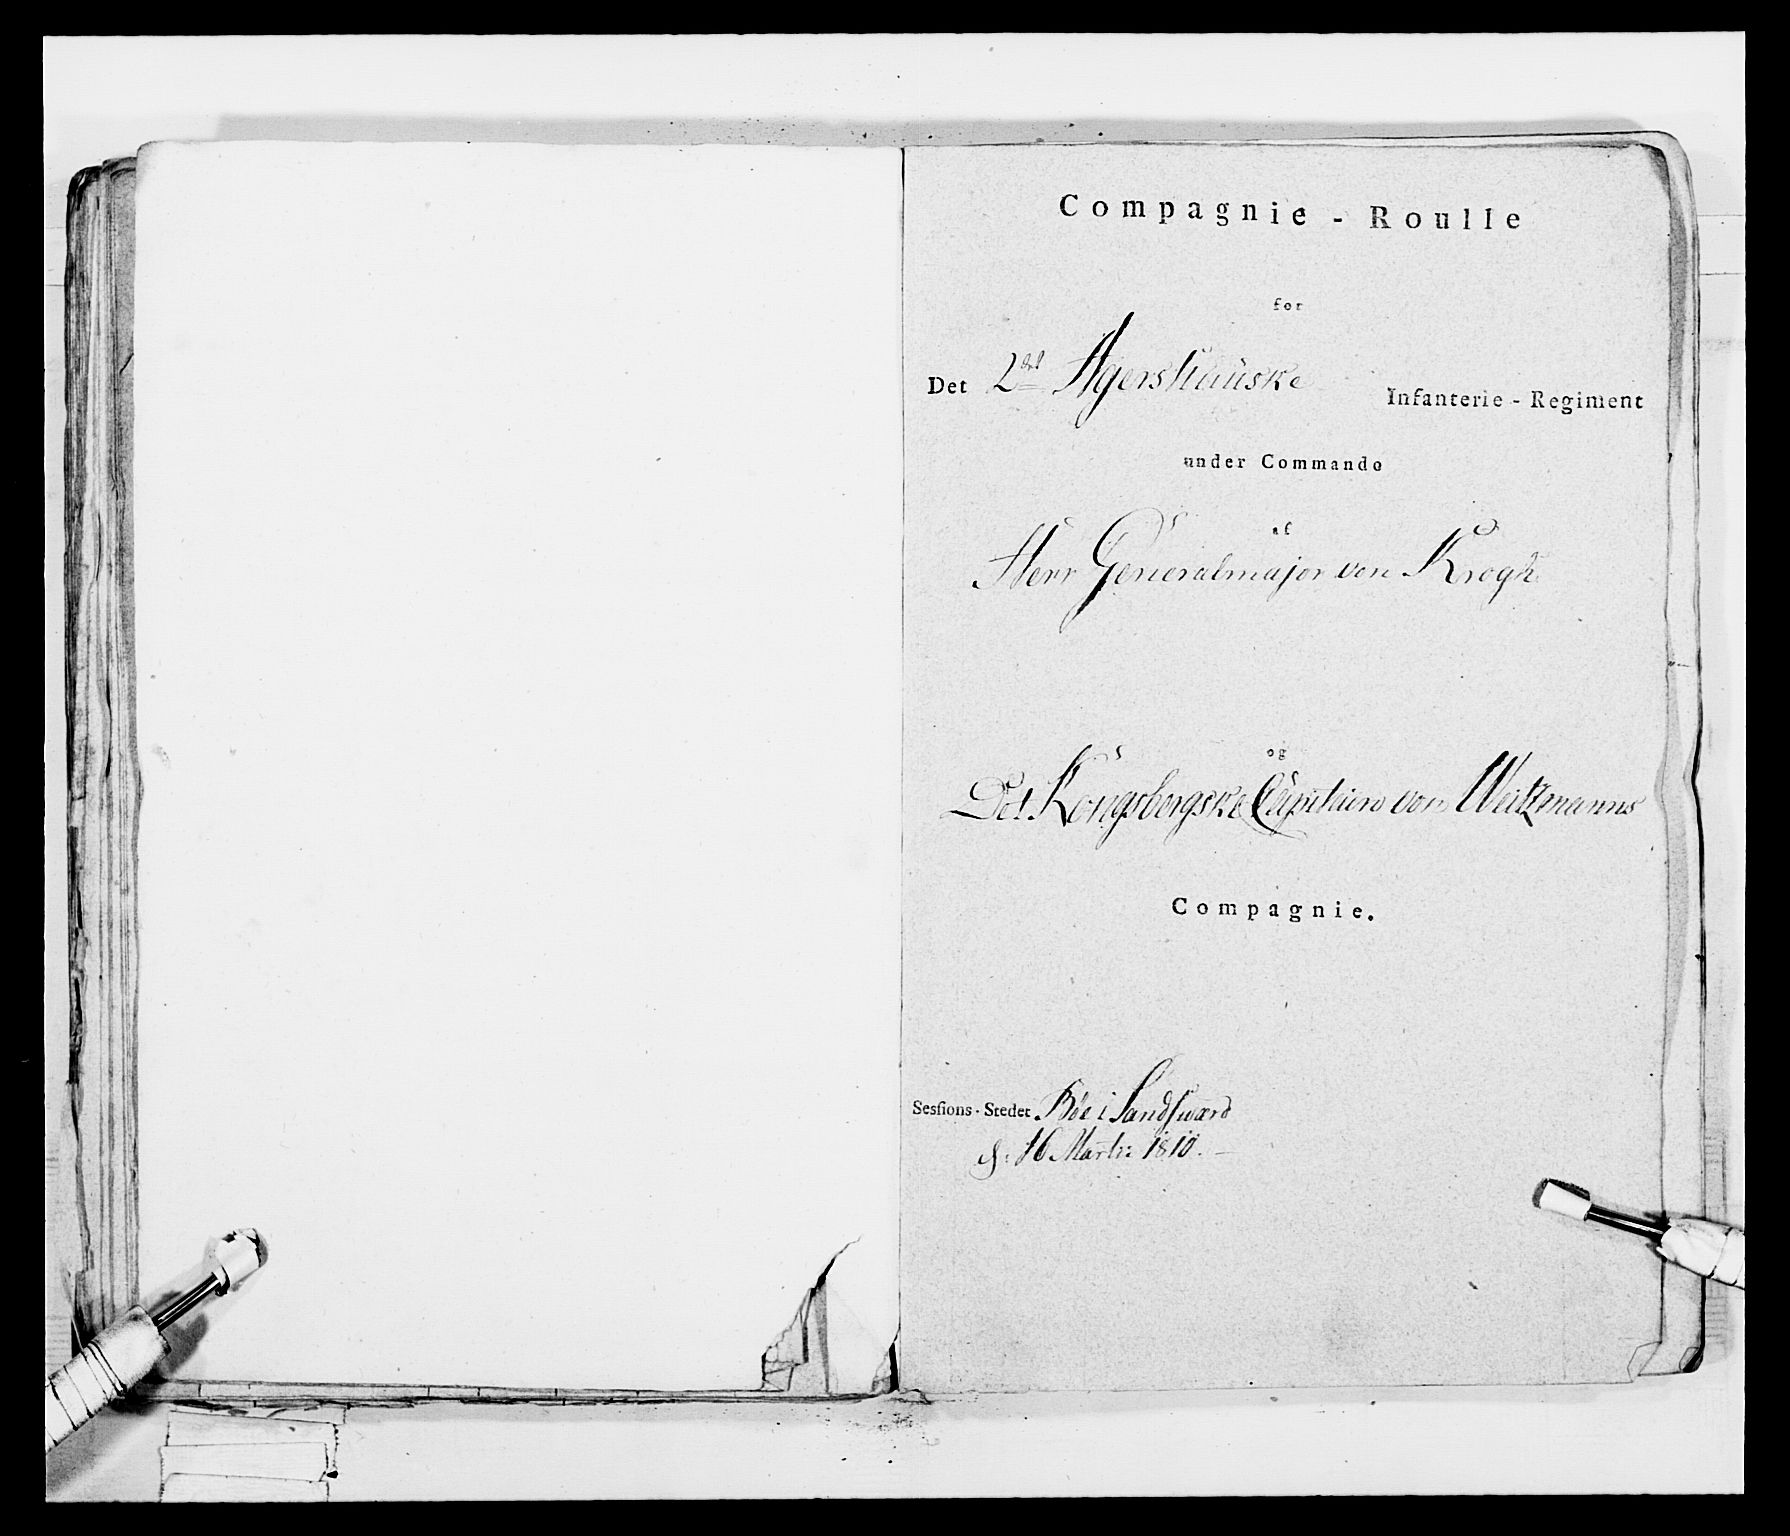 Compagnie - Roulle
for
Det 2det Agershuuske Infanterie - Regiment
under Commando
af
Herr Generalmajor von Krogh
og
Det Kongsbergske Capitaien von Weitzmanns
Compagnie.
Sesſions-Stedet Böe i Sandsværd
d: 16 Marti: 1810.